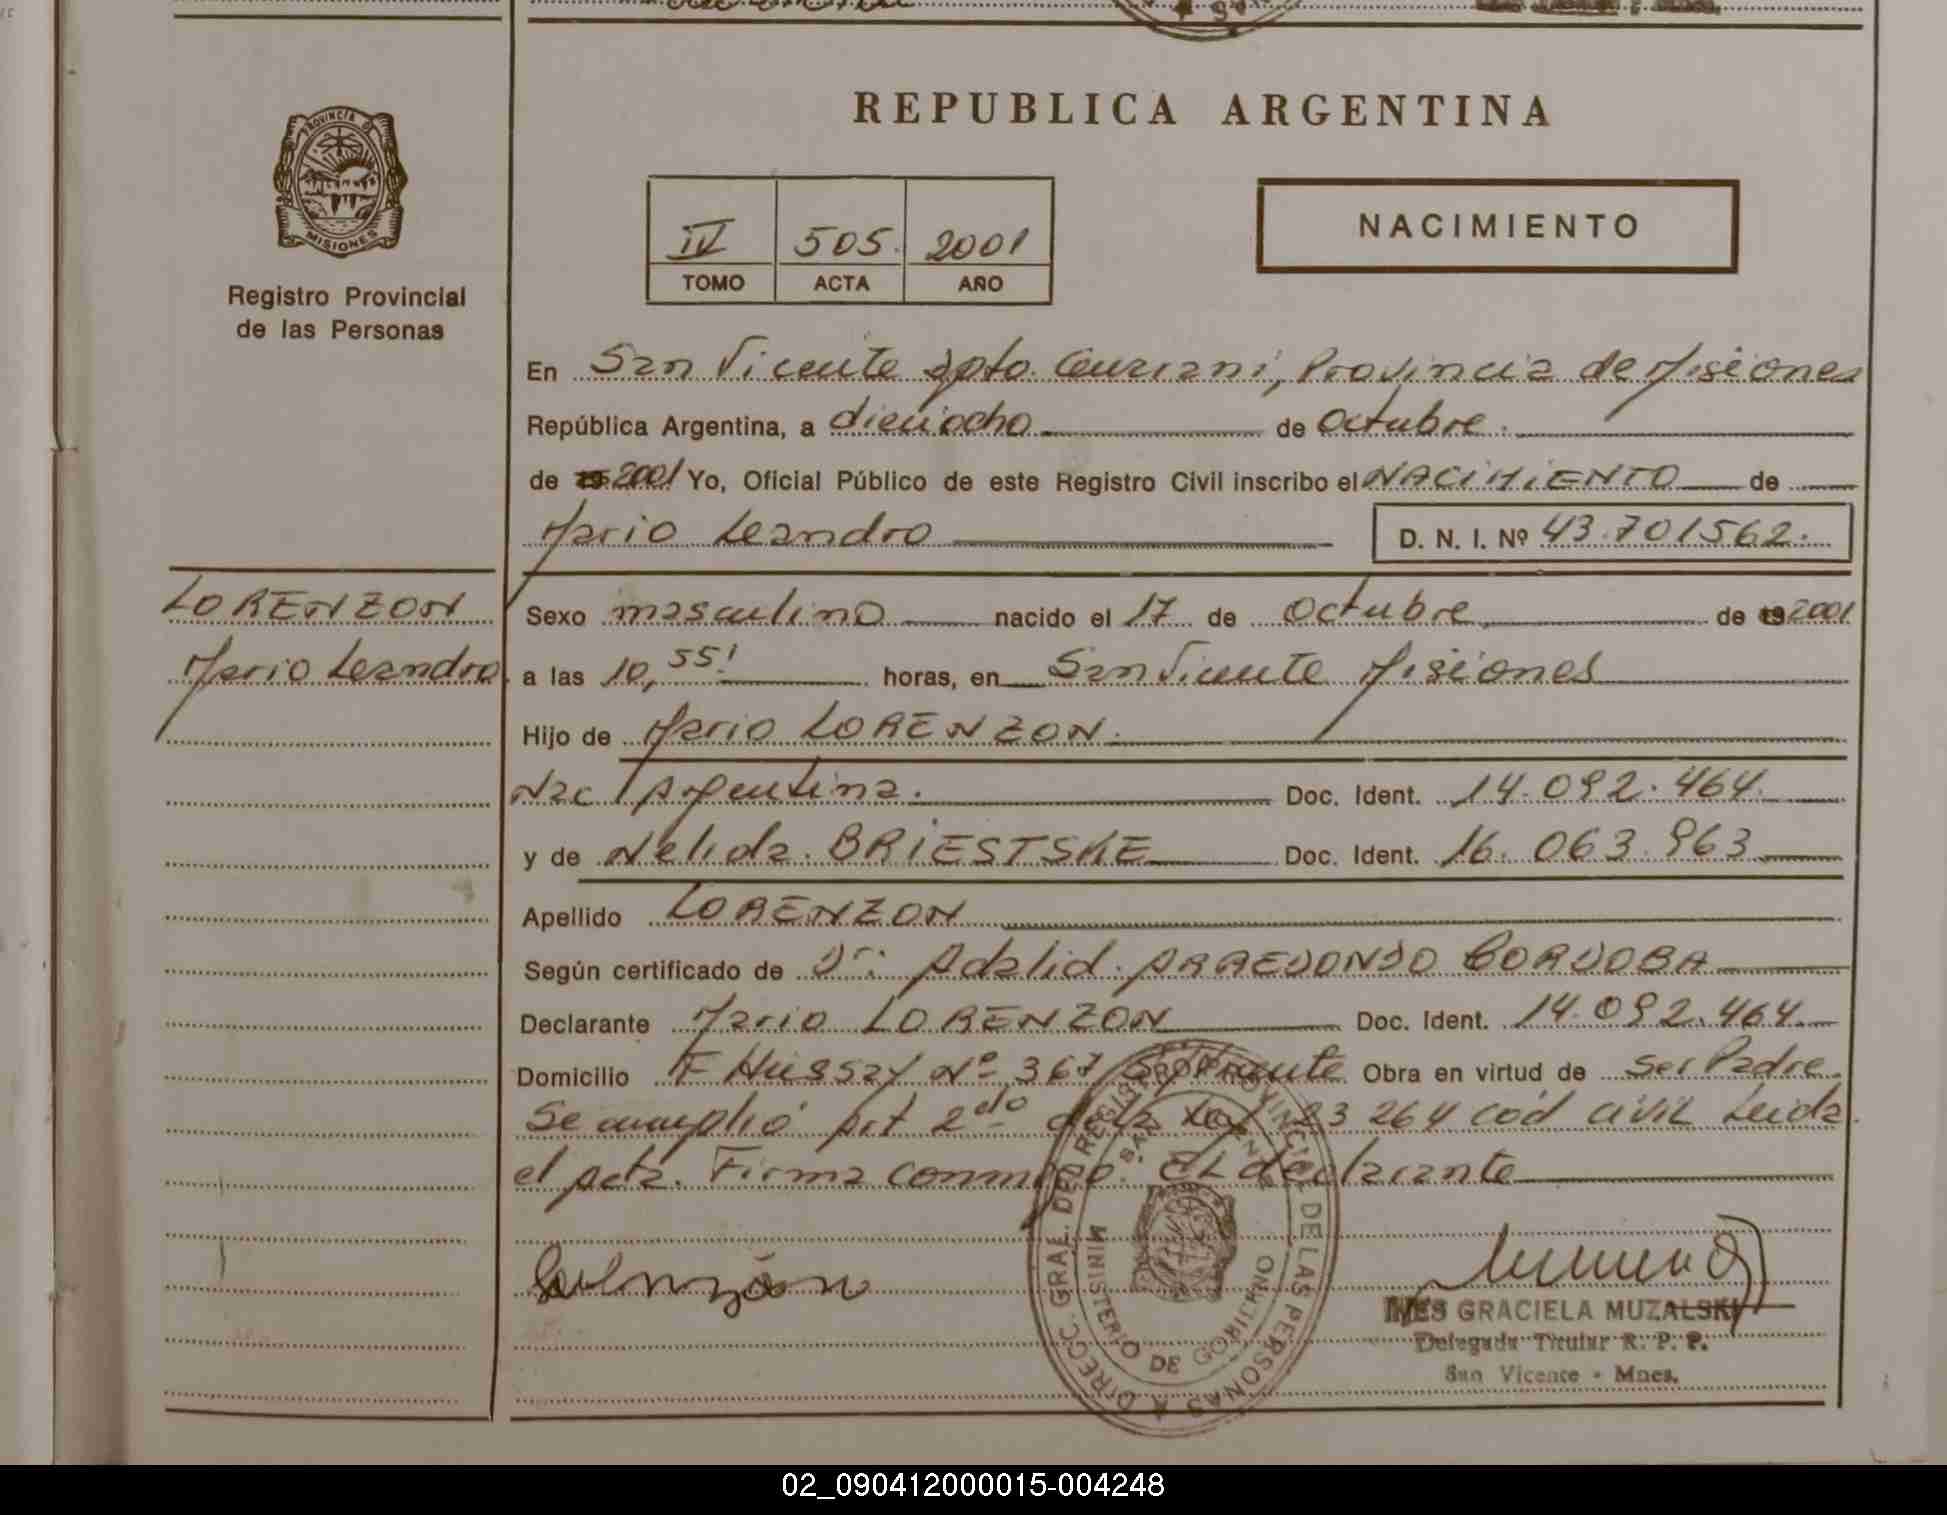 REPUBLICA ARGENTINA
PROVINCIA D MISIONES
Registro Provincial
de las Personas
IV 505. 2001
TOMO ACTA AÑO
NACIMIENTO
En San Vicente Dpto. Guarani, Provincia de Misiones
República Argentina, a dieciocho de Octubre.
de 2001 Yo, Oficial Público de este Registro Civil inscribo el NACIMIENTO de
Mario Leandro D. N. I. Nº 43.701562.
LORENZON
Mario Leandro
Sexo masculino nacido el 17 de Octubre de 2001
a las 10,55' horas, en San Vicente Misiones
Hijo de Mario LORENZON.
Nac Argentina. Doc. Ident. 14.092.464.
y de Nelida BRIESTSKE Doc. Ident. 16.063.963
Apellido LORENZON
Según certificado de Dr: Adalid ARREDONDO CORDOBA
Declarante Mario LORENZON Doc. Ident. 14.092.464.
Domicilio F Hussay Nº 367 S/Vicente Obra en virtud de Ser Padre.
Se cumplió Art 2do de la Ley 23264 cód civil Leida
el Acta. Firma conmigo: EL declarante
DIRECC. GRAL. DEL REGISTRO PROVINCIAL DE LAS PERSONAS
SAN VICENTE
MINISTERIO DE GOBIERNO
INES GRACIELA MUZALSKI
Delegada Titular R. P. P.
San Vicente - Mnes.
02_090412000015-004248